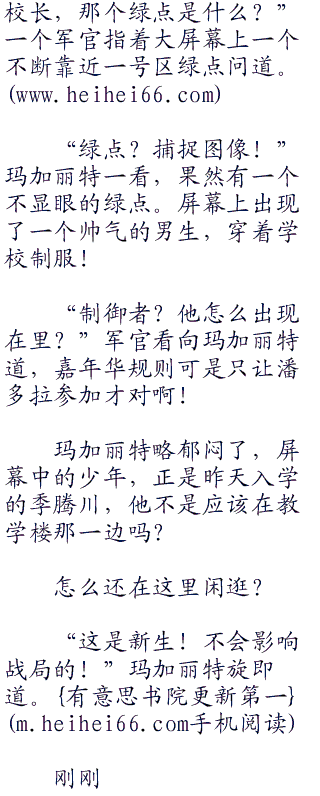 校长，那个绿点是什么？”
一个军官指着大屏幕上一个
不断靠近一号区绿点问道。
(www.heihei66.com)
“绿点？捕捉图像！”
玛加丽特一看，果然有一个
不显眼的绿点。屏幕上出现
了一个帅气的男生，穿着学
校制服！
“制御者？他怎么出现
在里？”军官看向玛加丽特
道，嘉年华规则可是只让潘
多拉参加才对啊！
玛加丽特略郁闷了，屏
幕中的少年，正是昨天入学
的季腾川，他不是应该在教
学楼那一边吗？
怎么还在这里闲逛？
“这是新生！不会影响
战局的！”玛加丽特旋即
道。{有意思书院更新第一}
(m.heihei66.com手机阅读)
刚刚